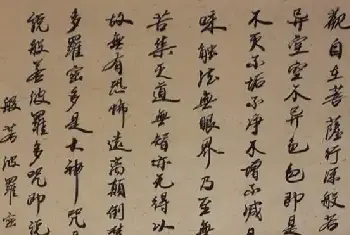 觀自在菩薩行深般若
異空空不異色色即是
不灭不垢不净不增不减是
味触法無眼界乃至無
苦集灭道無智亦无得以
故無有恐怖遠离顛倒
多羅蜜多是大神咒
說般若波羅多咒即說
般若波羅蜜